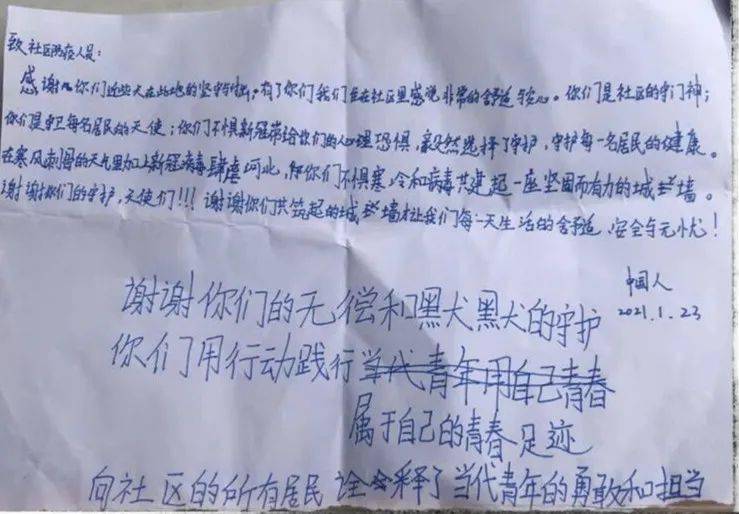 致社区防疫人员：
感谢你们近些天在此地的坚守与付出，有了你们我们在社区里感觉非常的舒适与安心。你们是社区的守门神；
你们是守卫每名居民的天使；你们不惧新冠带给你们的心理恐惧，毅然选择了守护，守护每一名居民的健康。
在寒风刺骨的天气里加上新冠病毒肆虐河北，但你们不惧寒冷和病毒共建起一座坚固而有力的城墙。
谢谢你们的守护，天使们!!! 谢谢你们共筑起的城墙才让我们每一天生活的舒适、安全与无忧!
中国人
2021.1.23
谢谢你们的无偿和默默的守护
你们用行动践行当代青年用自己青春
属于自己的青春足迹
向社区的所有居民诠释了当代青年的勇敢和担当